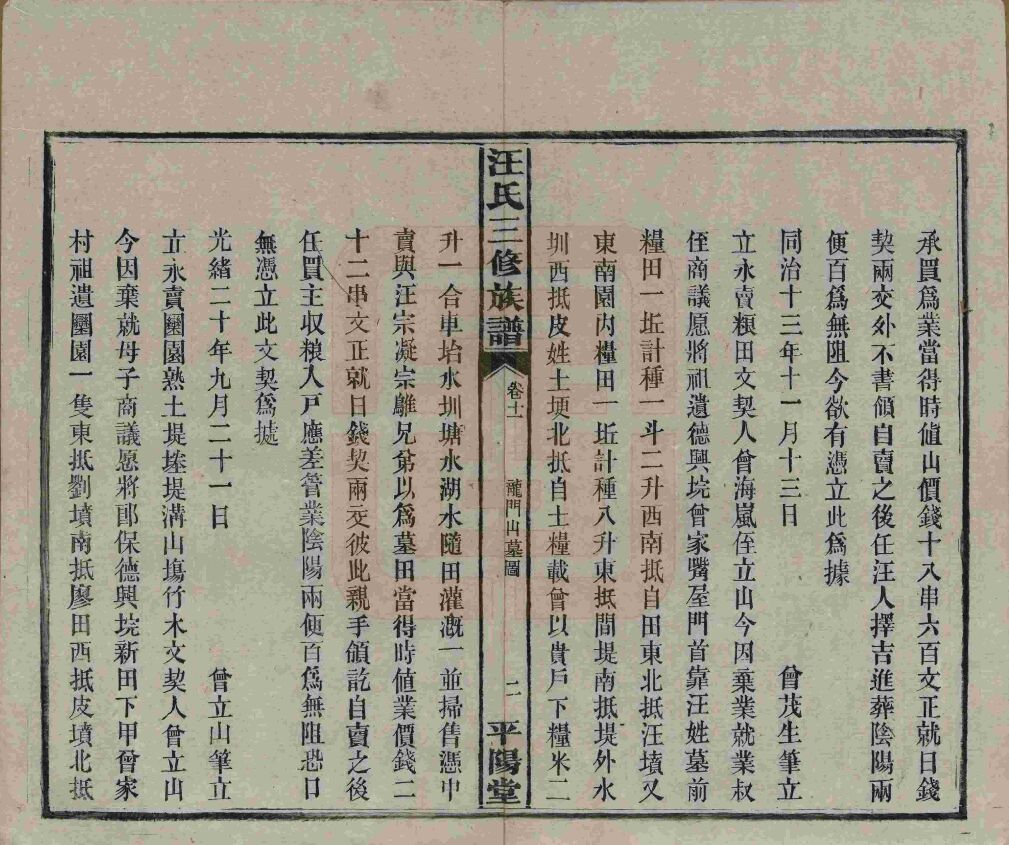 承買爲業當得時值山價錢十八串六百文正就日錢
契兩交外不書領自賣之後任汪人擇吉進葬陰陽兩
便百爲無阻今欲有憑立此爲據
同治十三年十一月十三日　曾茂生筆立
立永賣粮田文契人曾海嵐侄立山今因棄業就業叔
侄商議愿將祖遺德興垸曾家嘴屋門首靠汪姓墓前
糧田一坵計種一斗二升西南抵自田東北抵汪墳又
東南園內糧田一坵計種八升東抵間堤南抵堤外水
圳西抵皮姓土埂北抵自土糧載曾以貴戶下糧米二
汪氏三修族譜　卷十一　龍門山墓圖　二　平陽堂
升一合車坮水圳塘水湖水隨田灌溉一並掃售憑中
賣與汪宗凝宗雝兄弟以爲墓田當得時值業價錢二
十二串文正就日錢契兩交彼此親手領訖自賣之後
任買主收粮入戶應差管業陰陽兩便百爲無阻恐口
無憑立此文契爲㨿
光緒二十年九月二十一日　曾立山筆立
立永賣園熟土堤塍堤溝山塲竹木文契人曾立山
今因棄就母子商議愿將郎保德興垸新田下甲曾家
村祖遺園一隻東抵劉墳南抵廖田西抵皮墳北抵